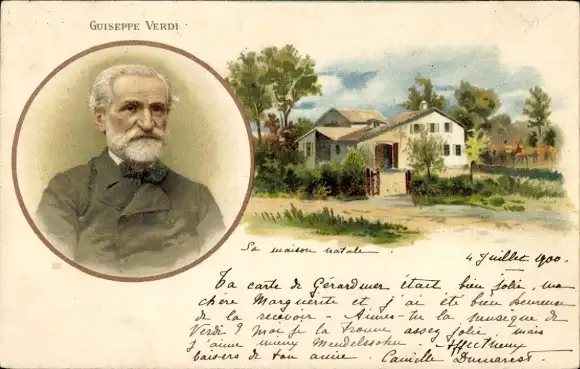 GUISEPPE VERDI
Sa maison natale.
4 Juillet 1900.
Ta carte de Gérardmer était bien jolie, ma
chère Marguerite et j'ai été bien heureuse
de la recevoir - Aimes-tu la musique de
Verdi ? moi je la trouve assez jolie mais
j'aime mieux Mendelssohn. Affectueux
baisers de ton amie. Camille Dumarest.